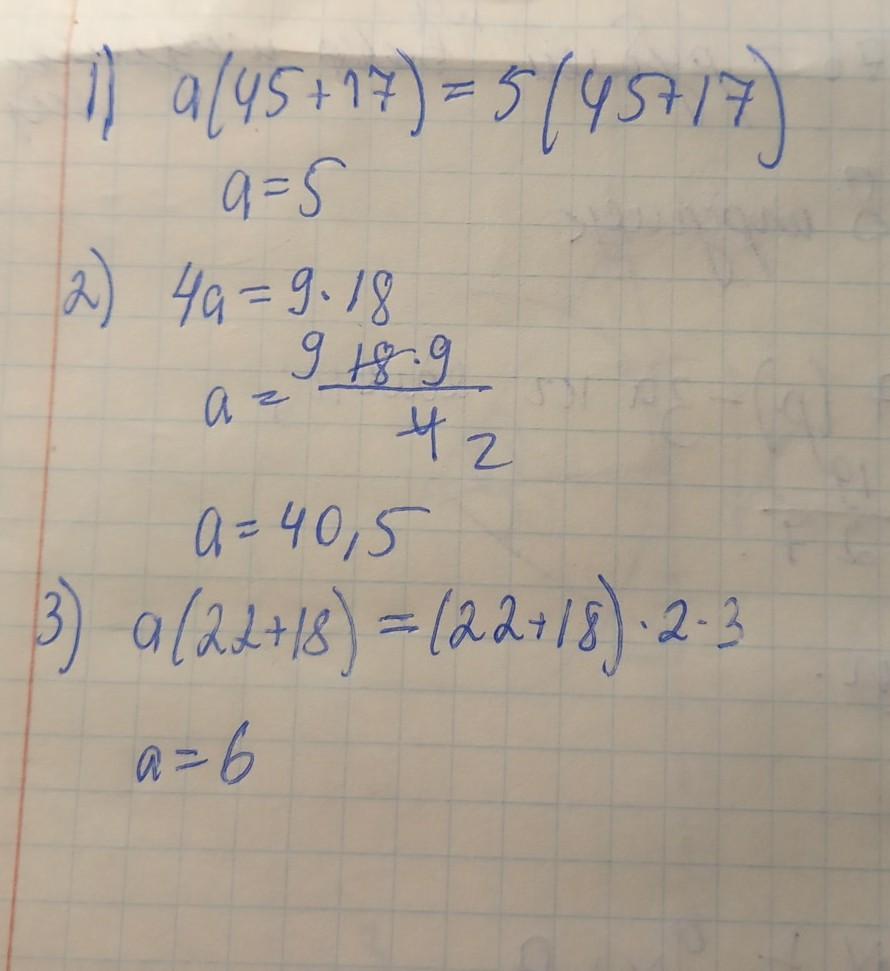 1) a(45+17)=5(45+17)
a=5
2) 4a=9·18
a= 9 18·9
4 2
a=40,5
3) a(22+18)=(22+18)·2·3
a=6